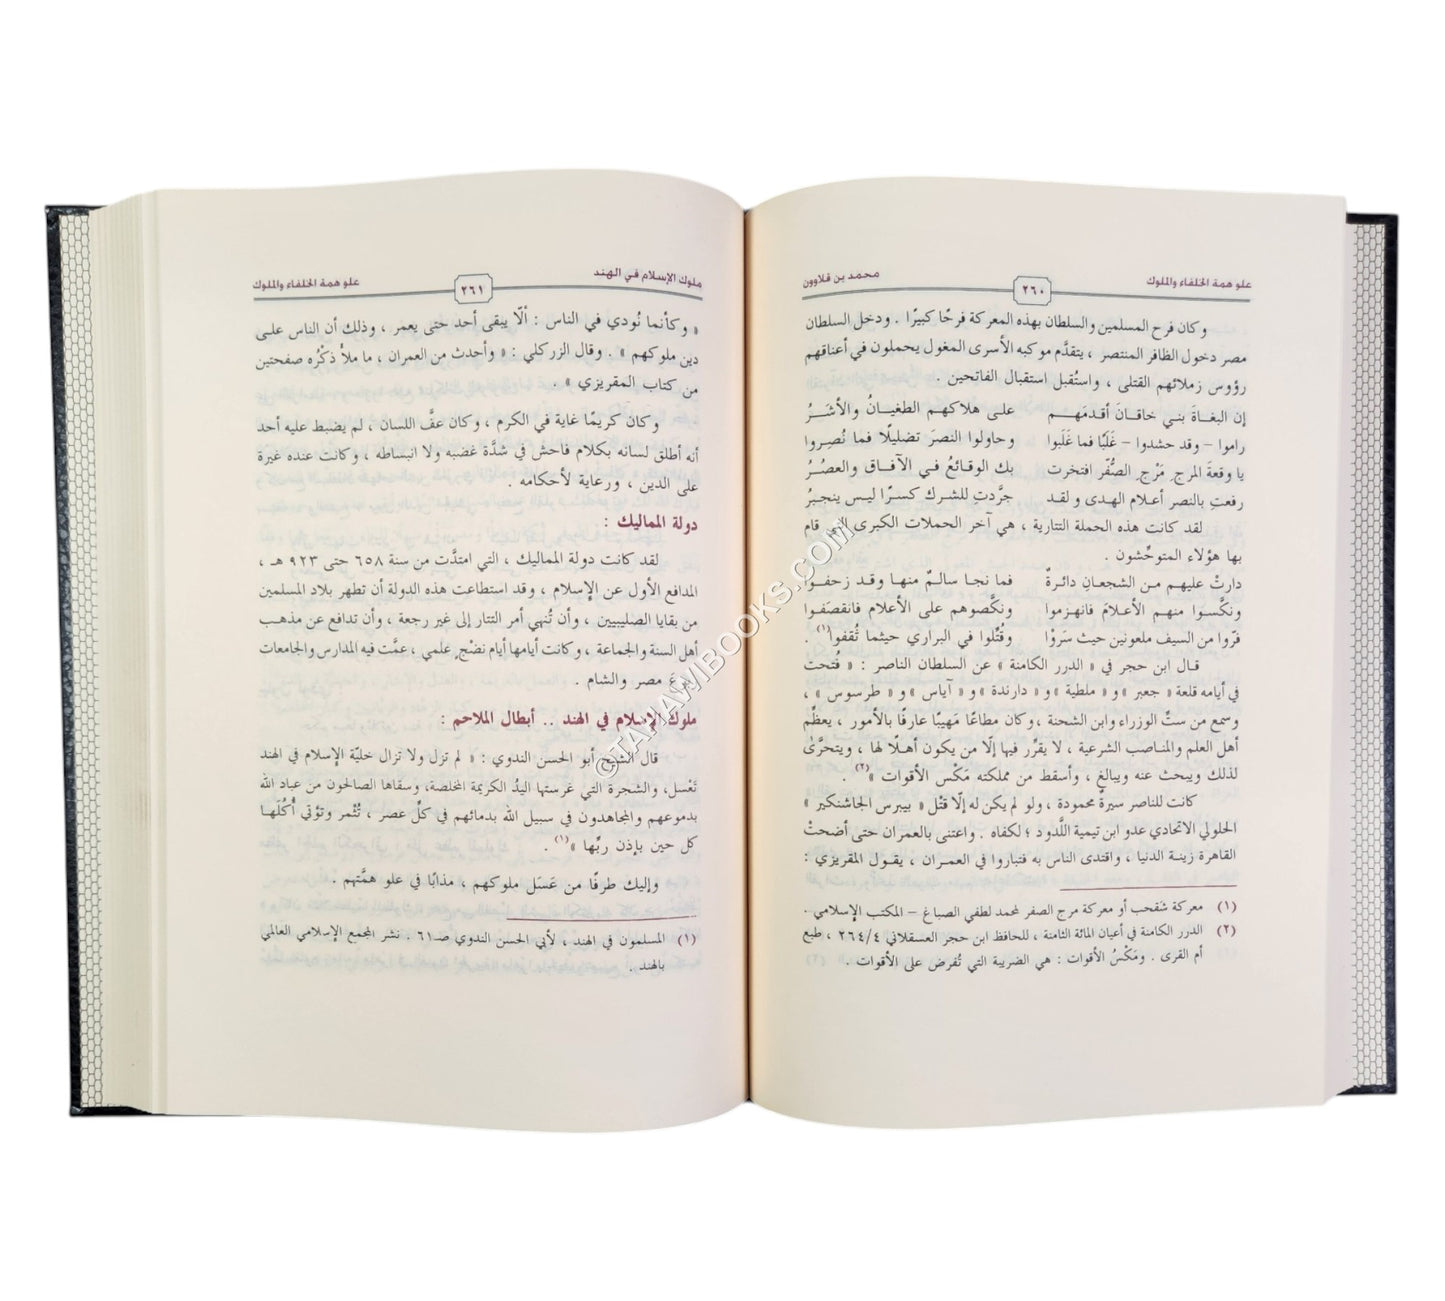 علو همة الخلفاء والملوك ٢٦٠ محمد بن قلاوون
وكان فرح المسلمين والسلطان بهذه المعركة فرحًا كبيرًا . ودخل السلطان
مصر دخول الظافر المنتصر ، يتقدَّم موكبه الأسرى المغول يحملون في أعناقهم
رؤوس زملائهم القتلى ، واستُقبل استقبال الفاتحين .
إن البغاة بني خاقان أقدمَهم على هلاكهم الطغيانُ والأشَرُ
راموا – وقد حشدوا – غَلَبًا فما غَلَبوا وحاولوا النصرَ تضليلًا فما نُصِروا
يا وقعةَ المرجِ مَرْجِ الصُّفّر افتخرت بك الوقائعُ في الآفاق والعصُرُ
رفعتِ بالنصر أعلام الهدى و لقد جرَّدتِ للشرك كسرًا ليس ينجبرُ
لقد كانت هذه الحملة التتارية ، هي آخر الحملات الكبرى التي قام
بها هؤلاء المتوحِّشون .
دارتْ عليهم من الشجعان دائرةٌ فما نجا سالمٌ منها وقد زحفوا
ونكَّسوا منهم الأعلامَ فانهزموا ونكَّصوهم على الأعلام فانقصَفوا
فرّوا من السيف ملعونين حيث سَرَوْا وقُتِّلوا في البراري حيثما ثُقفوا(١) .
قال ابن حجر في « الدرر الكامنة » عن السلطان الناصر : « فُتحت
في أيامه قلعة « جعبر » و « ملطية » و « دارندة » و « آياس » و « طرسوس » ،
وسمع من ستّ الوزراء وابن الشحنة ، وكان مطاعًا مَهيبًا عارفًا بالأمور ، يعظِّم
أهل العلم والمناصب الشرعية ، لا يقرِّر فيها إلّا من يكون أهلًا لها ، ويتحرَّىٰ
لذلك ويبحث عنه ويبالغ ، وأسقط من مملكته مَكْس الأقوات »(٢) .
كانت للناصر سيرةٌ محمودة ، ولو لم يكن له إلّا قتْل « بيبرس الجاشنكير »
الحلولي الاتحادي عدو ابن تيمية اللَّدود ؛ لكفاه . واعتنى بالعمران حتى أضحتْ
القاهرة زينة الدنيا ، واقتدى الناس به فتباروا في العمران ، يقول المقريزي :
(١) معركة شقحب أو معركة مرج الصفر لمحمد لطفي الصباغ – المكتب الإسلامي .
(٢) الدرر الكامنة في أعيان المائة الثامنة ، للحافظ ابن حجر العسقلاني ٢٦٤/٤ ، طبع
أم القرى . ومَكْسُ الأقوات : هي الضريبة التي تُفرض على الأقوات .
ملوك الإسلام في الهند ٢٦١ علو همة الخلفاء والملوك
« وكأنما نُودي في الناس : ألّا يبقى أحد حتى يعمر ، وذلك أن الناس على
دين ملوكهم » . وقال الزركلي : « وأحدث من العمران ، ما ملأ ذكْرُه صفحتين
من كتاب المقريزي » .
وكان كريمًا غاية في الكرم ، وكان عفَّ اللسان ، لم يضبط عليه أحد
أنه أطلق لسانه بكلام فاحش في شدَّة غضبه ولا انبساطه ، وكانت عنده غيرة
على الدين ، ورعاية لأحكامه .
دولة المماليك :
لقد كانت دولة المماليك ، التي امتدَّت من سنة ٦٥٨ حتى ٩٢٣ هـ ،
المدافع الأول عن الإسلام ، وقد استطاعت هذه الدولة أن تطهر بلاد المسلمين
من بقايا الصليبيين ، وأن تُنهي أمر التتار إلى غير رجعة ، وأن تدافع عن مذهب
أهل السنة والجماعة ، وكانت أيامها أيام نضْجٍ علمي ، عمَّت فيه المدارس والجامعات
مصر والشام .
ملوك الإسلام في الهند .. أبطال الملاحم :
قال الشيخ أبو الحسن الندوي : « لم تزل ولا تزال خليّة الإسلام في الهند
تَعْسل، والشجرة التي غرستها اليدُ الكريمة المخلصة، وسقاها الصالحون من عباد الله
بدموعهم والمجاهدون في سبيل الله بدمائهم في كلِّ عصر ، تُثْمر وتؤتي أُكُلَها
كل حين بإذن ربِّها »(١) .
وإليك طرفًا من عَسَل ملوكهم ، مذابًا في علو همَّتهم .
(١) المسلمون في الهند ، لأبي الحسن الندوي صـ٦١ . نشر المجمع الإسلامي العالمي
بالهند .
©TAHAWIBOOKS.COM